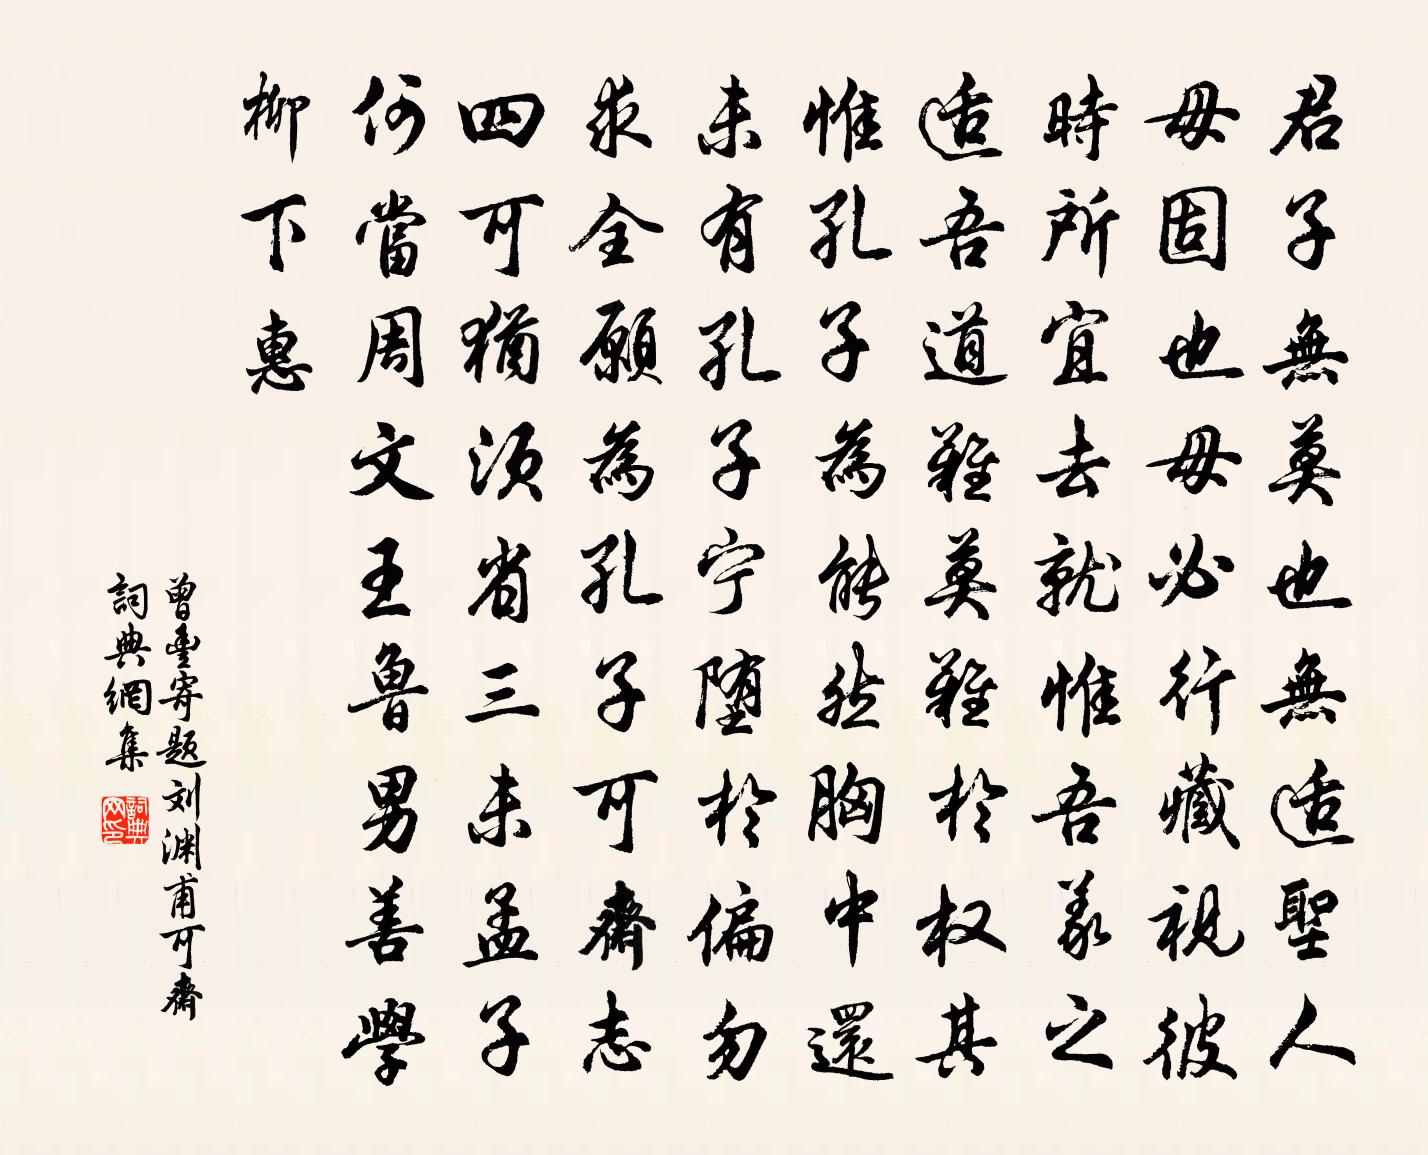 君子無莫也無适聖人
毋固也毋必行藏視彼
時所宜去就惟吾義之
适吾道難莫難於权其
惟孔子為能然胸中還
未有孔子宁堕於偏勿
求全願為孔子可齋志
四可猶須省三未孟子
何當周文王魯男善學
柳下惠
曾豐寄題刘渊甫可齋
詞典網集
詞典网印